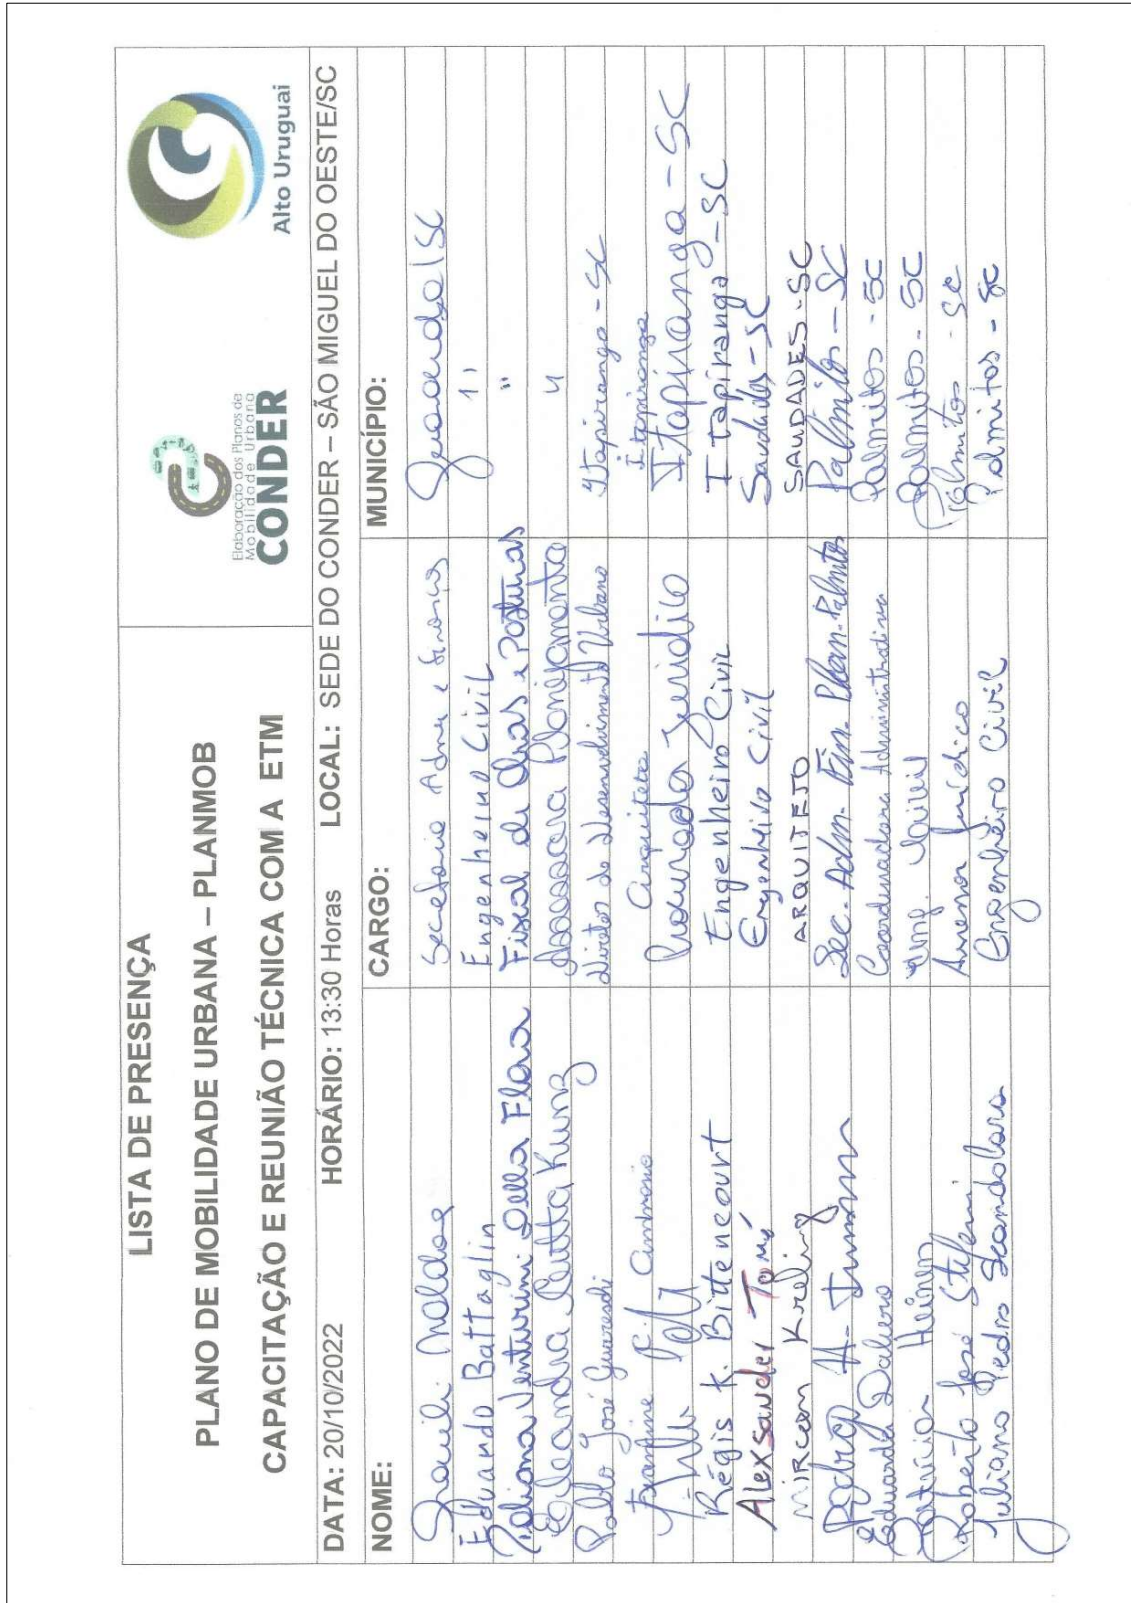 LISTA DE PRESENÇA
PLANO DE MOBILIDADE URBANA – PLANMOB
CAPACITAÇÃO E REUNIÃO TÉCNICA COM A ETM
Elaboração dos Planos de
Mobilidade Urbana
CONDER
Alto Uruguai
DATA: 20/10/2022 HORÁRIO: 13:30 Horas LOCAL: SEDE DO CONDER – SÃO MIGUEL DO OESTE/SC
NOME: CARGO: MUNICÍPIO:
Secretario Adm e Finanças
Eduardo Battaglin Engenheiro Civil 11
Venturini Della Flora Fiscal de Obras e Posturas "
Kunz Assessora Planejamento 4
Pablo José Guareschi Diretor de Desenvolvimento Urbano Itapiranga - SC
C. Ambrosio Arquiteta Itapiranga
Procurador Jurídico Itapiranga - SC
Régis K. Bittencourt Engenheiro Civil Itapiranga - SC
Alexsander Tomé Engenheiro Civil Saudades - SC
Mircon Kreling ARQUITETO SAUDADES - SC
Rodrigo H. Sec. Adm. Fin. Plan. Palmitos Palmitos - SC
Eduarda Daliero Coordenadora Administrativa Palmitos - SC
Patricia Heinen Eng. Civil Palmitos - SC
Roberto José Stefeni Assessor Jurídico Palmitos - SC
Juliano Pedro Scandolara Engenheiro Civil Palmitos - SC